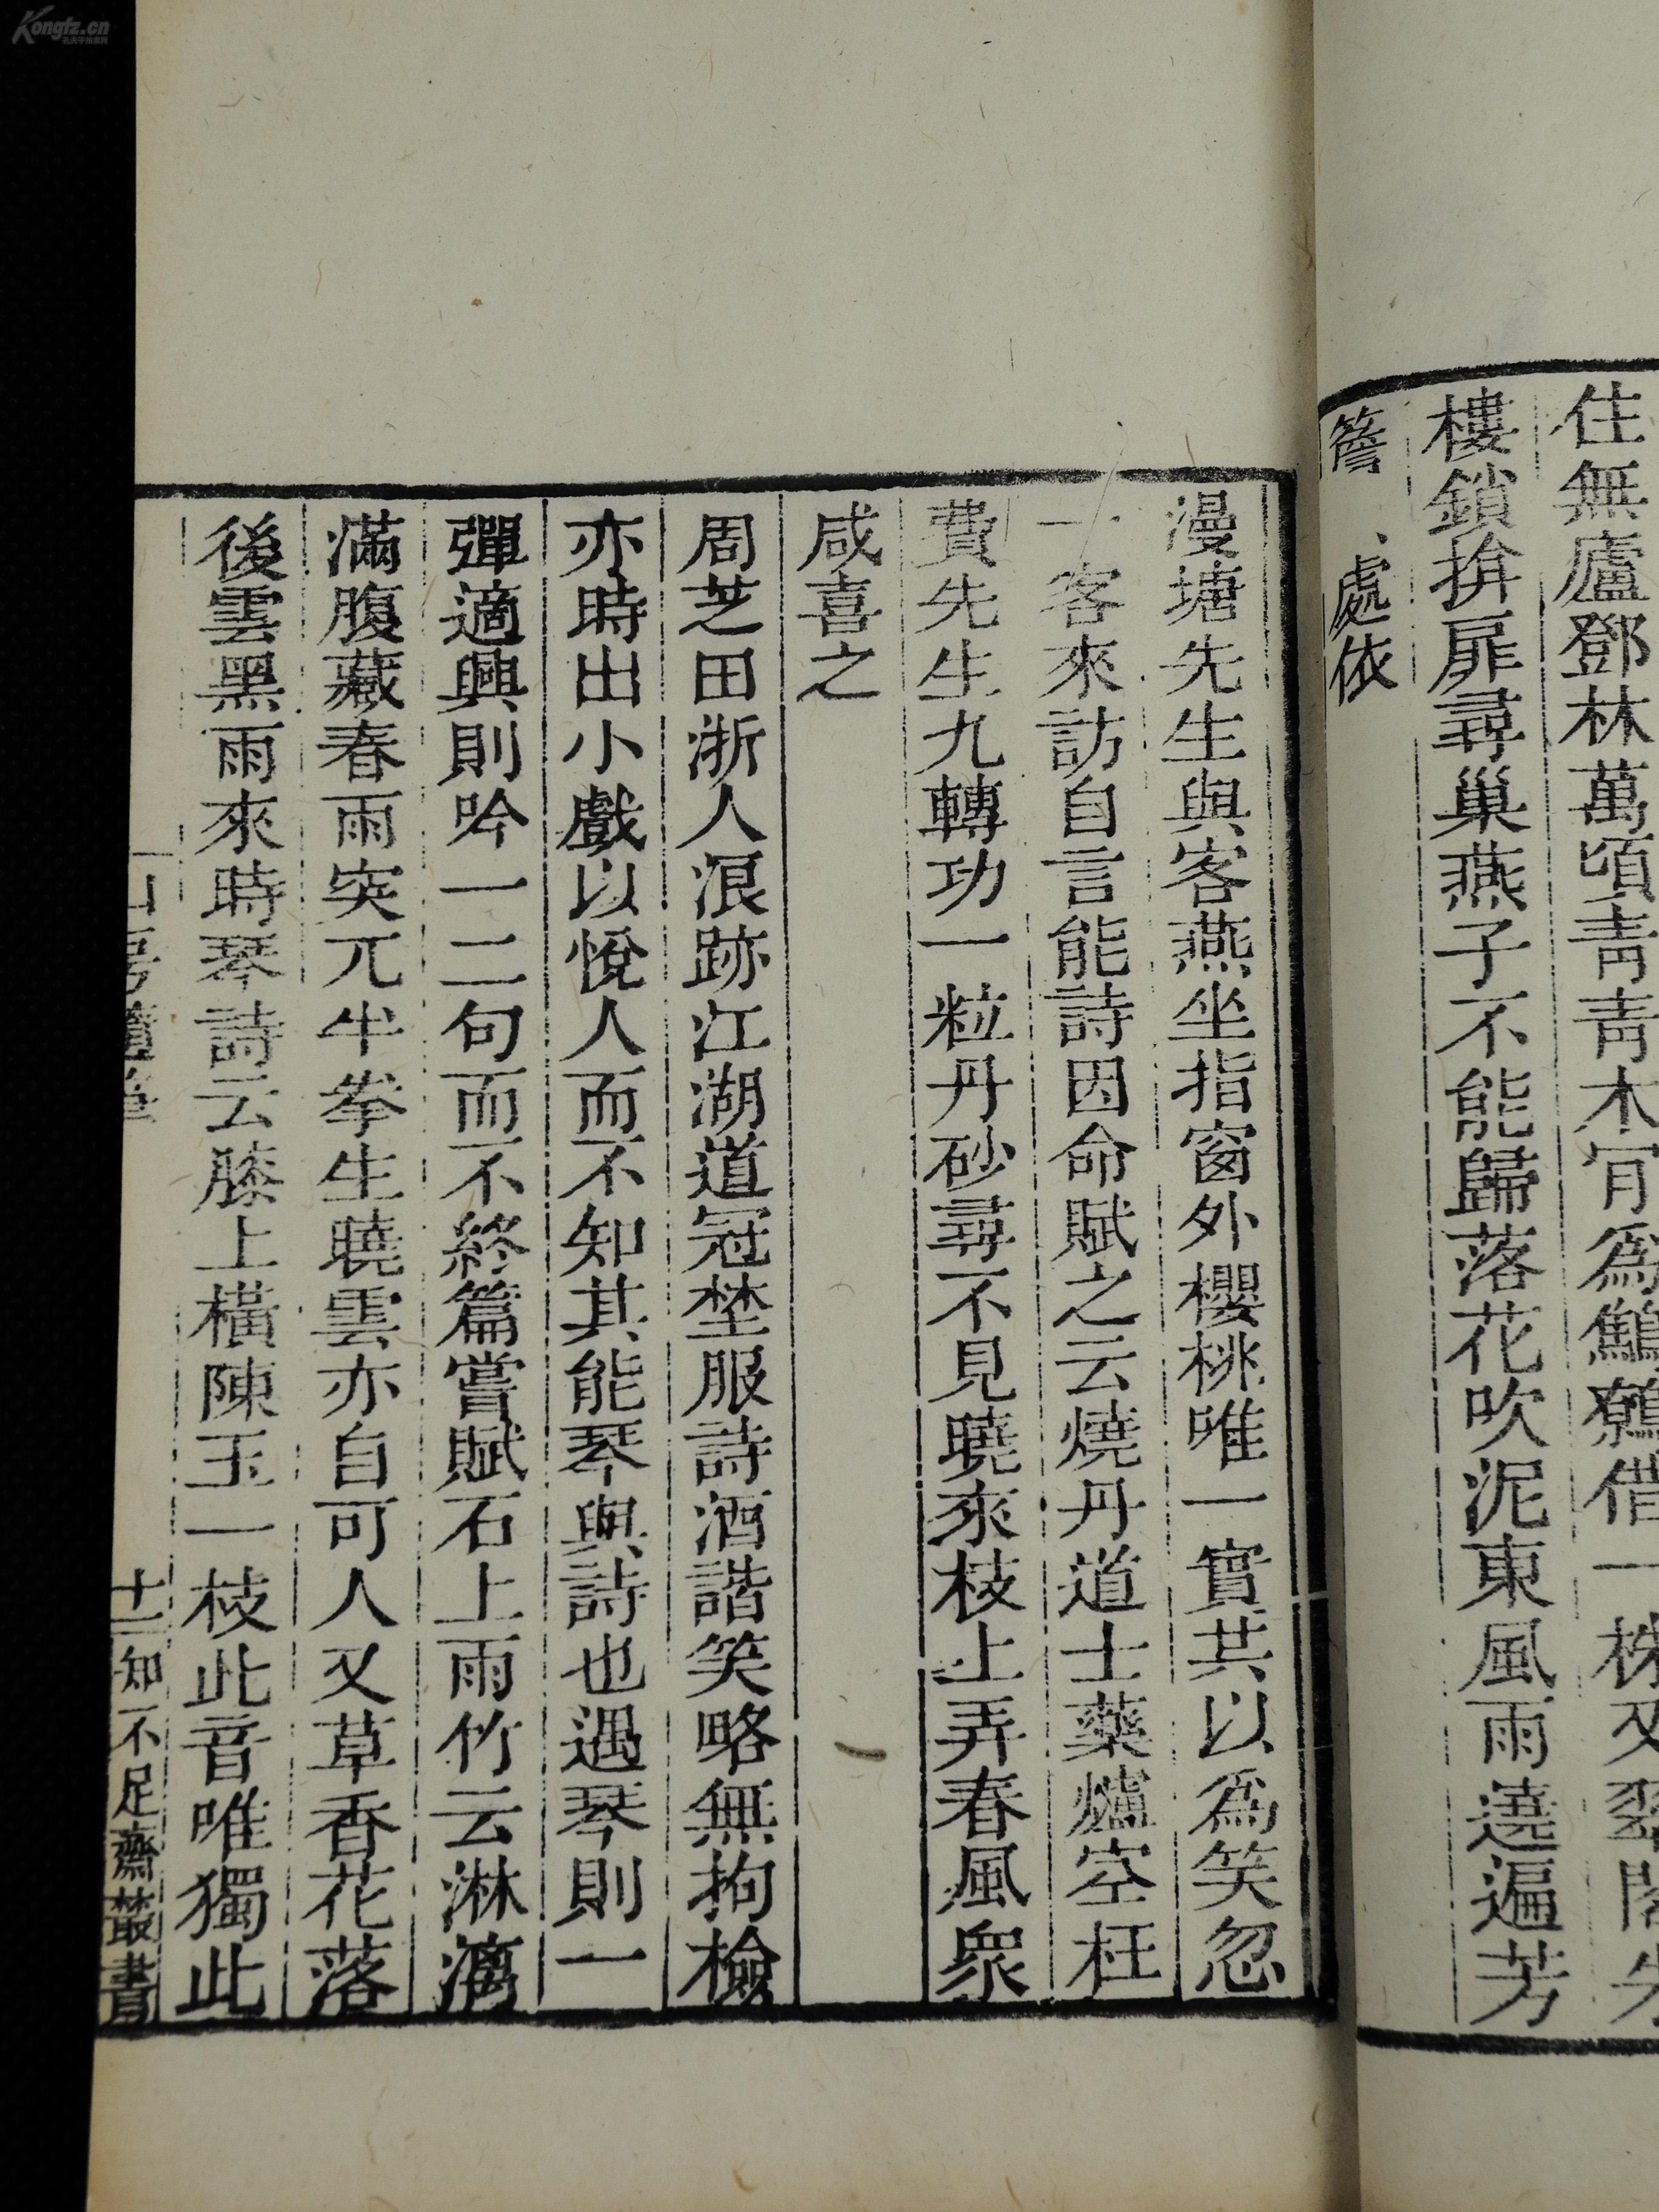 住無廬鄧林萬頃青青木肎爲鷦鷯借一株又翠閣朱
樓鎖揜扉尋巢燕子不能歸落花吹泥東風雨遶遍芳
簷 處依
漫塘先生與客燕坐指窗外櫻桃唯一實共以爲笑忽
一客來訪自言能詩因命賦之云燒丹道士藥爐空枉
費先生九轉功一粒丹砂尋不見曉來枝上弄春風衆
咸喜之
周芝田浙人浪跡江湖道冠埜服詩酒諧笑略無拘檢
亦時出小戲以悅人而不知其能琴與詩也遇琴則一
彈適興則吟一二句而不終篇嘗賦石上雨竹云淋漓
滿腹藏春雨突兀半拳生曉雲亦自可人又草香花落
後雲黑雨來時琴詩云膝上橫陳玉一枝此音唯獨此
山房隨筆
十二知不足齋叢書
Kongfz.cn